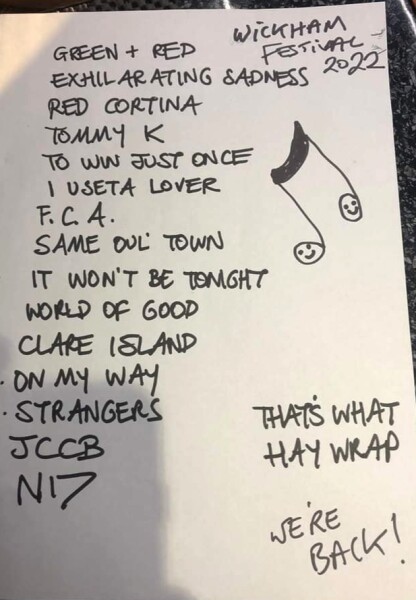 WICKHAM
FESTIVAL
2022
GREEN + RED
EXHILARATING SADNESS
RED CORTINA
TOMMY K
TO WIN JUST ONCE
I USETA LOVER
F.C.A.
SAME OUL' TOWN
IT WON'T BE TONIGHT
WORLD OF GOOD
CLARE ISLAND
· ON MY WAY
· STRANGERS
JCCB
N17
THAT'S WHAT
HAY WRAP
WE'RE
BACK!